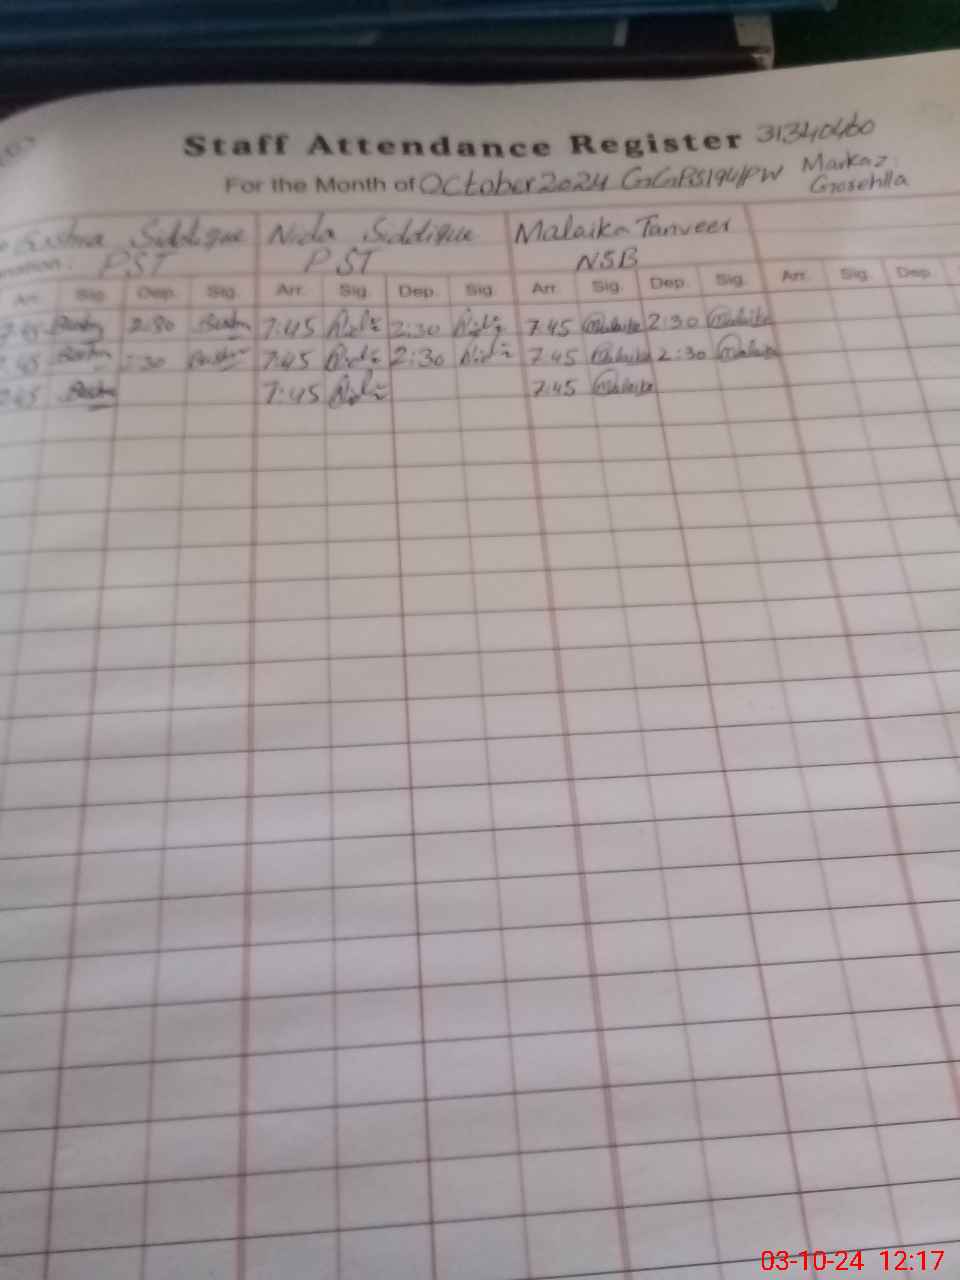 Staff Attendance Register 31340460
For the Month of October 2024 GGPS194/PW Markaz
Siddique Nida Siddique Malaika Tanveer
PST PST NSB
Arr. Sig. Dep. Sig. Arr. Sig. Dep. Sig. Arr. Sig. Dep. Sig. Arr. Sig. Dep.
7:45 2:30 7:45 Nida 2:30 Nida 7:45 Malaika 2:30 Malaika
:45 :30 7:45 Nida 2:30 Nida 7:45 Malaika 2:30 Malaika
7:45 7:45 Nida 7:45 Malaika
03-10-24 12:17